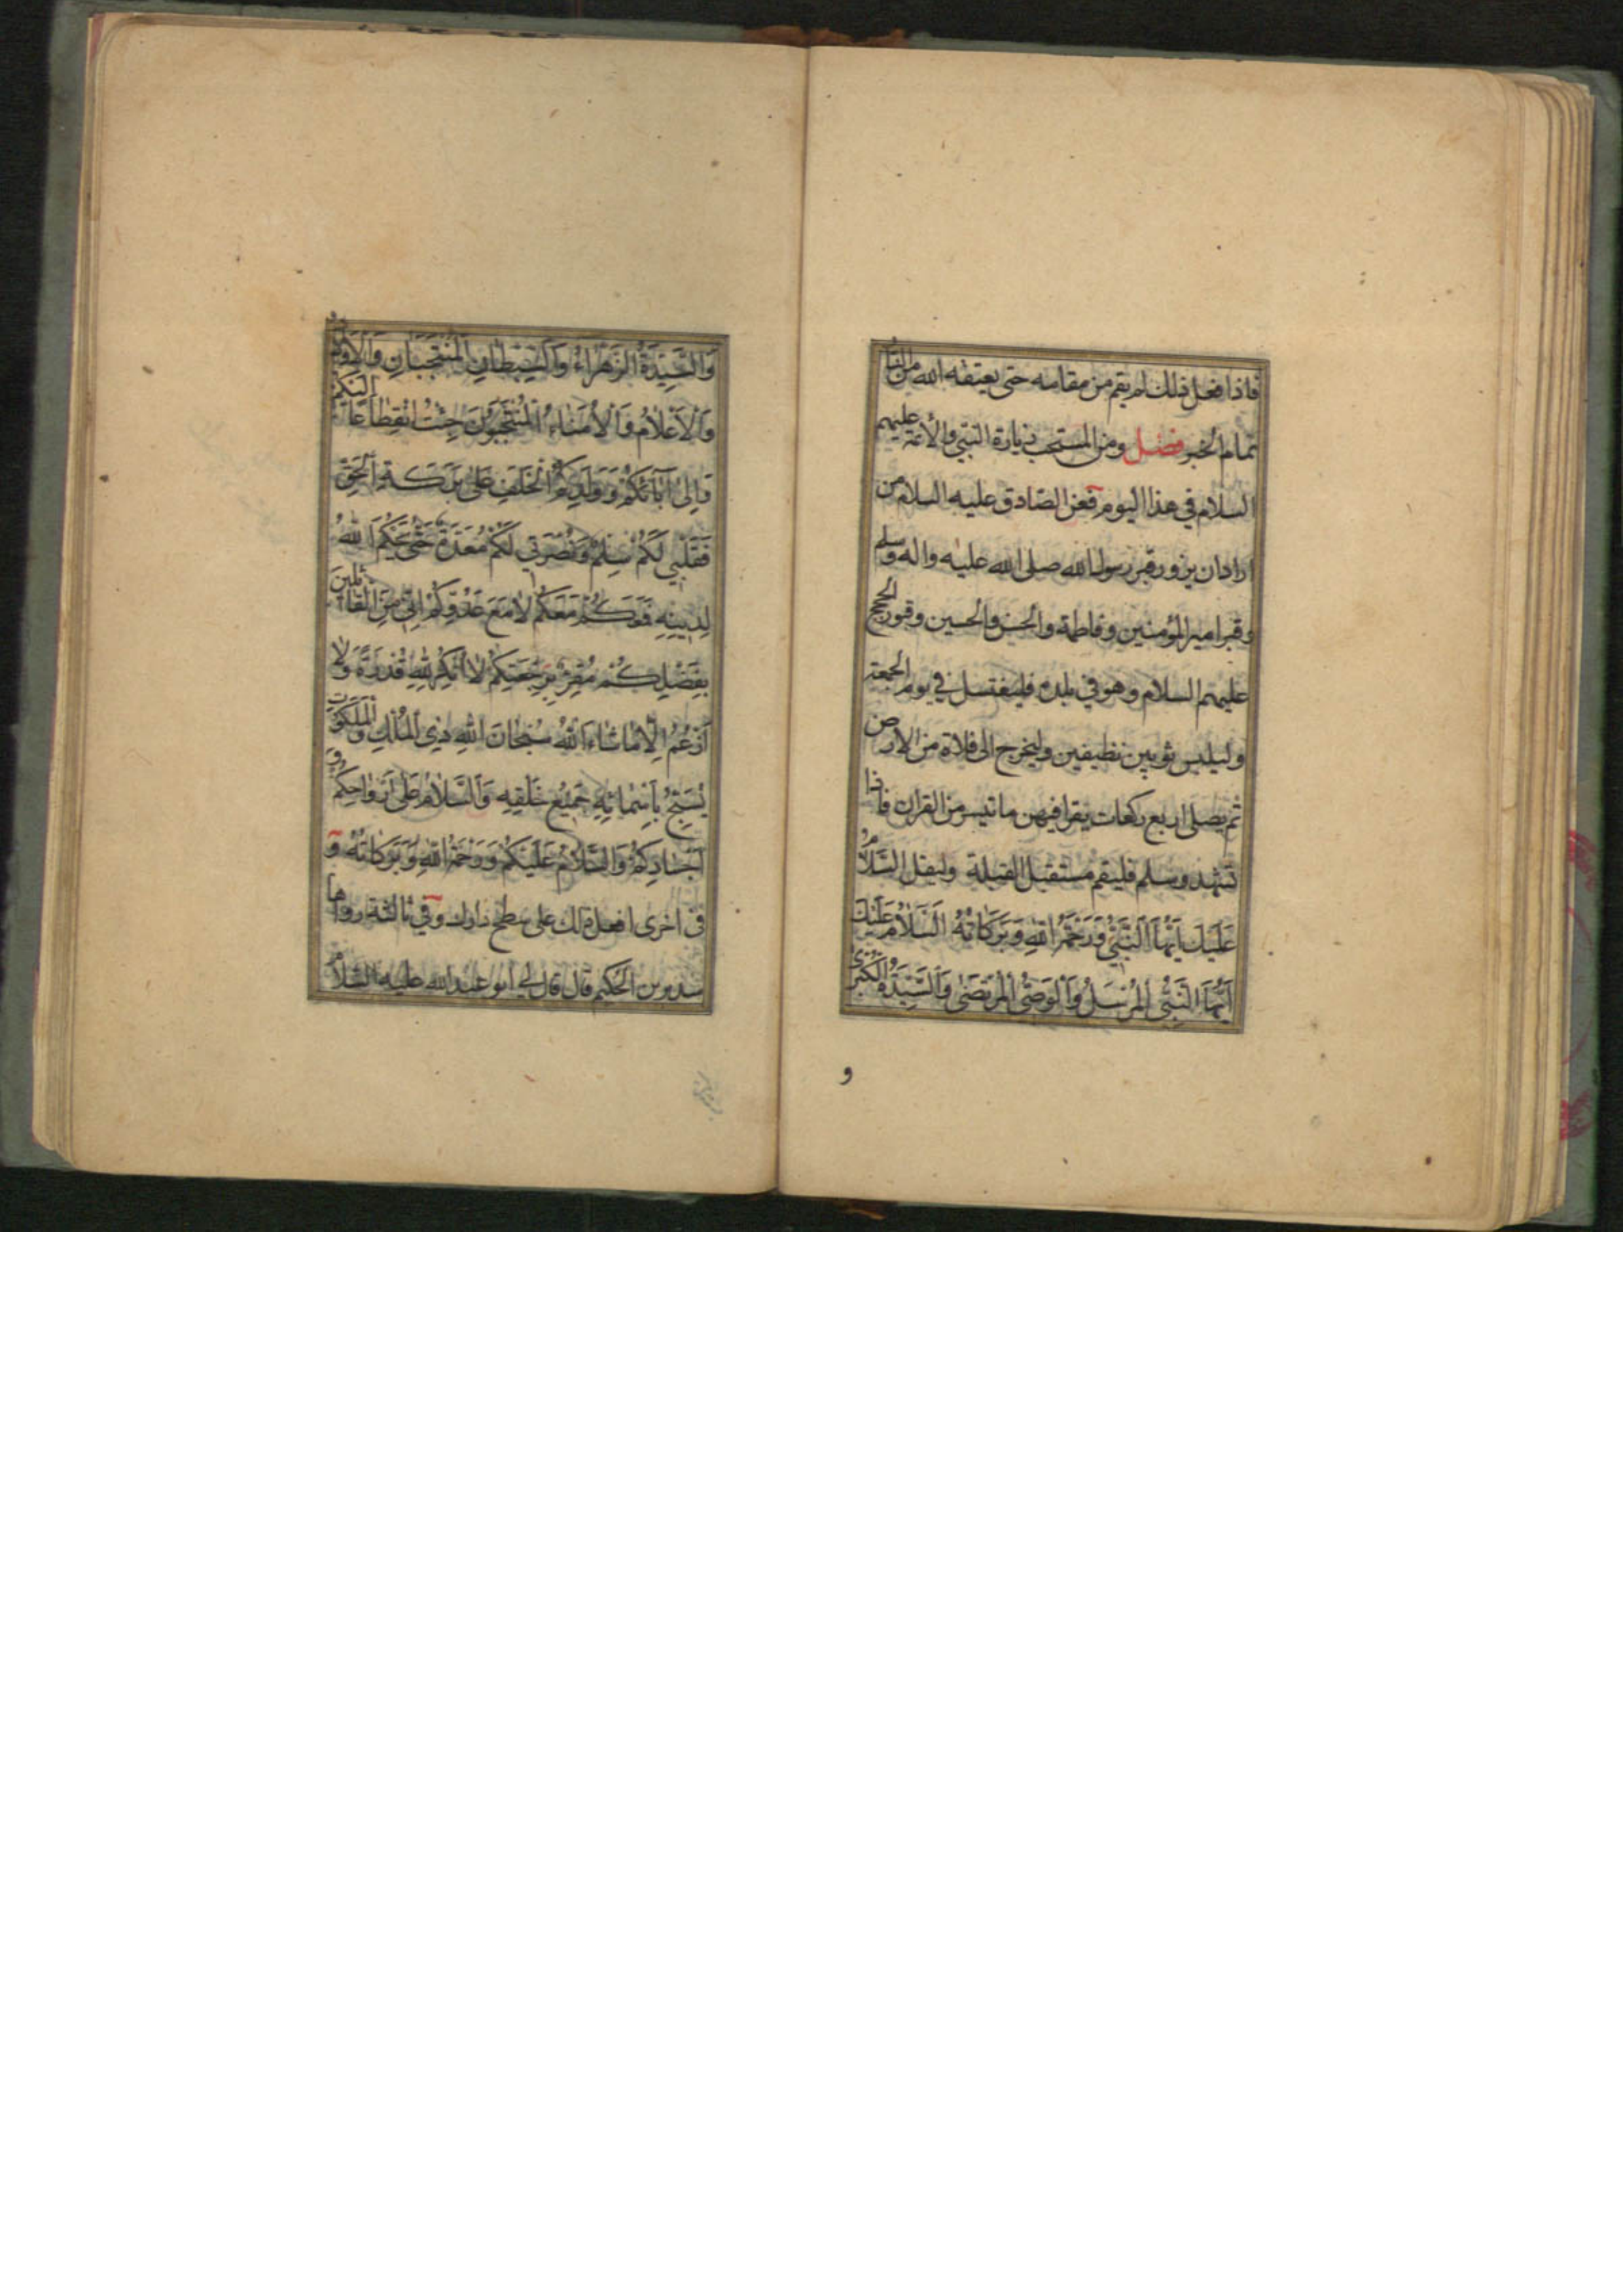 فاذا فعل ذلك لم يقم من مقامه حتى يعتقه الله من النار
تمام الخبر فصل ومن المستحب زيارة النبي والأئمة عليهم
السلام في هذا اليوم فعن الصادق عليه السلام من
اراد ان يزور قبر رسول الله صلى الله عليه واله وسلم
وقبر امير المؤمنين وفاطمة والحسن والحسين وقبور الحجج
عليهم السلام وهو في بلده فليغتسل في يوم الجمعة
وليلبس ثوبين نظيفين وليخرج الى فلاة من الارض
ثم يصلى اربع ركعات يقرا فيهن ما تيسر من القران فاذا
تشهد وسلم فليقم مستقبل القبلة وليقل السَّلَامُ
عَلَيْكَ اَيُّهَا النَّبِيُّ وَرَحْمَةُ اللهِ وَبَرَكَاتُهُ السَّلَامُ عَلَيْكَ
اَيُّهَا النَّبِيُّ الْمُرْسَلُ وَالْوَصِيُّ الْمُرْتَضَى وَالسَّيِّدَةُ الْكُبْرَى
و
وَالسَّيِّدَةُ الزَّهْرَاءُ وَالسِّبْطَانِ الْمُنْتَجَبَانِ وَالْاَوْلَادُ
وَالْاَعْلَامُ وَالْاُمَنَاءُ الْمُنْتَجَبُونَ جِئْتُ انْقِطَاعًا اِلَيْكُمْ
وَاِلَى آبَائِكُمْ وَوَلَدِكُمُ الْخَلَفِ عَلَى بَرَكَةِ الْحَقِّ
فَقَلْبِي لَكُمْ سِلْمٌ وَنُصْرَتِي لَكُمْ مُعَدَّةٌ حَتَّى يَحْكُمَ اللهُ
لِدِينِهِ فَمَعَكُمْ مَعَكُمْ لَا مَعَ عَدُوِّكُمْ اِنِّي مِنَ الْقَائِلِينَ
بِفَضْلِكُمْ مُقِرٌّ بِرَجْعَتِكُمْ لَا اُنْكِرُ لِلّٰهِ قُدْرَةً وَلَا
اَزْعُمُ اِلَّا مَا شَاءَ اللهُ سُبْحَانَ اللهِ ذِي الْمُلْكِ وَالْمَلَكُوتِ
يُسَبِّحُ بِاَسْمَائِهِ جَمِيعُ خَلْقِهِ وَالسَّلَامُ عَلَى اَرْوَاحِكُمْ وَ
اَجْسَادِكُمْ وَالسَّلَامُ عَلَيْكُمْ وَرَحْمَةُ اللهِ وَبَرَكَاتُهُ و
في اخرى افعل ذلك على سطح دارك وفي ثالثة رواها
سدير بن الحكيم قال قال لي ابو عبد الله عليه السلام